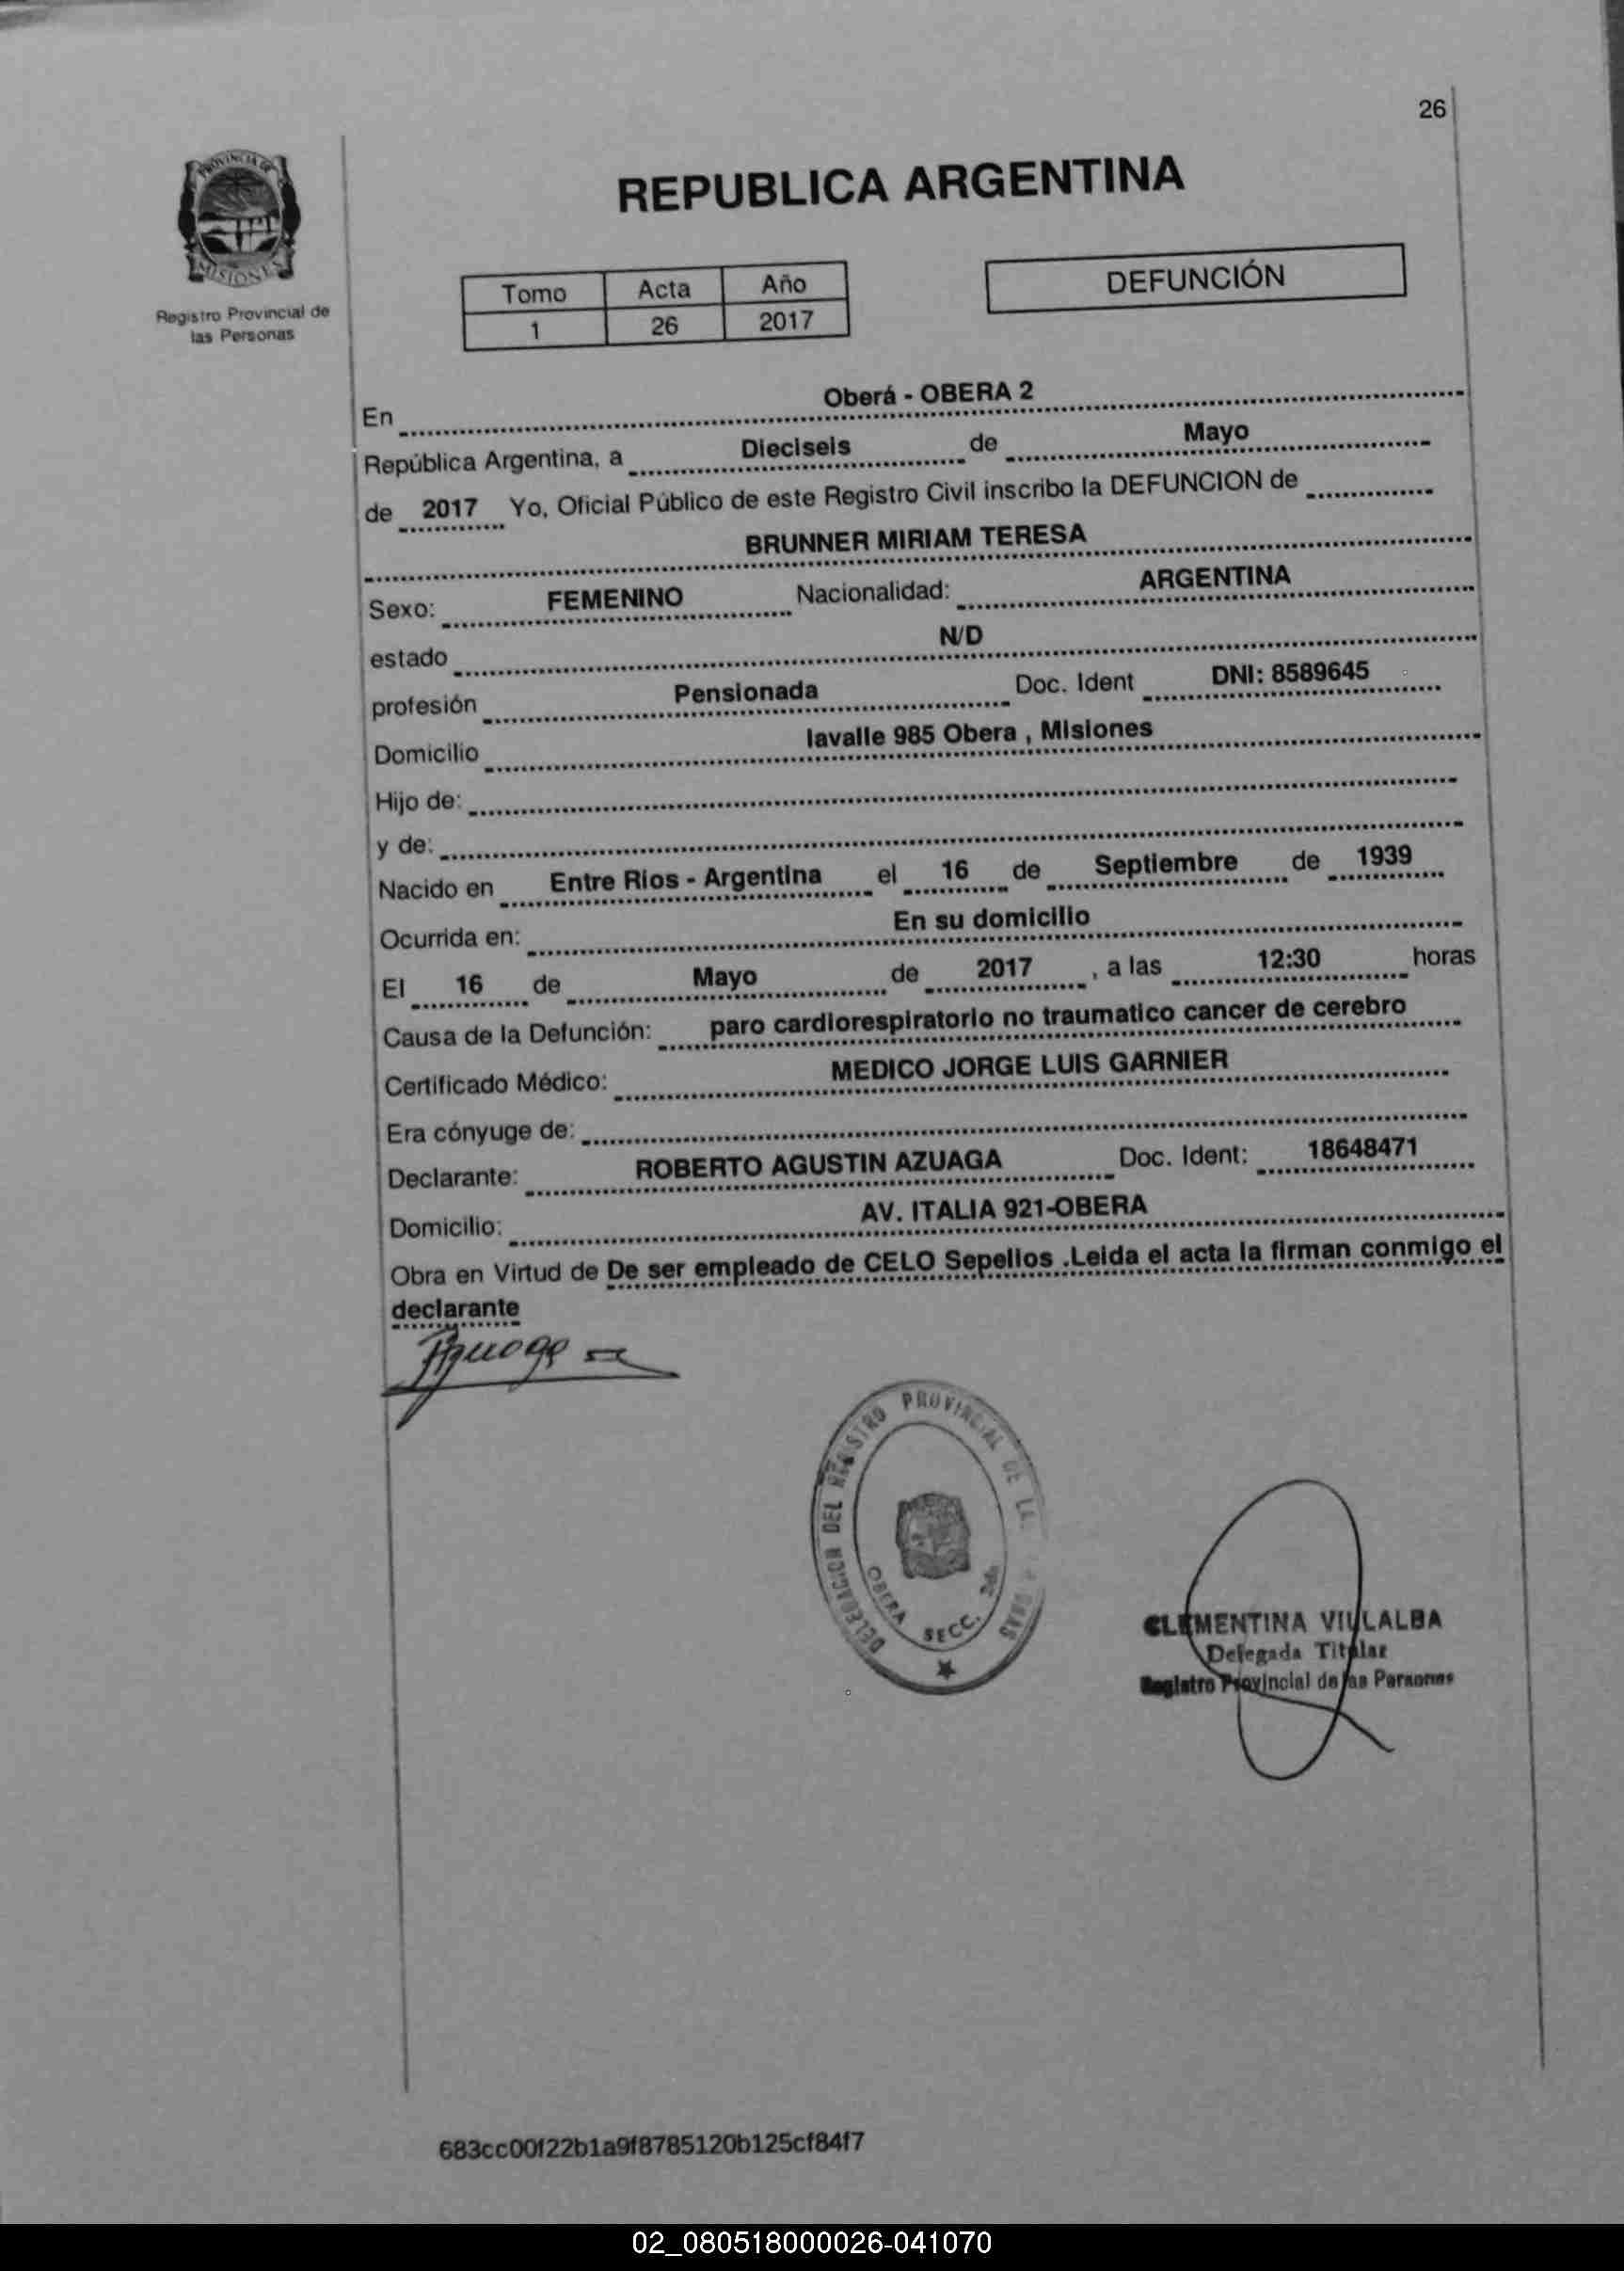 26
PROVINCIA DE
MISIONES
Registro Provincial de
las Personas
REPUBLICA ARGENTINA
Tomo Acta Año
1 26 2017
DEFUNCIÓN
En Oberá - OBERA 2
República Argentina, a Dieciseis de Mayo
de 2017 Yo, Oficial Público de este Registro Civil inscribo la DEFUNCION de
BRUNNER MIRIAM TERESA
Sexo: FEMENINO Nacionalidad: ARGENTINA
estado N/D
profesión Pensionada Doc. Ident DNI: 8589645
Domicilio lavalle 985 Obera , Misiones
Hijo de:
y de:
Nacido en Entre Rios - Argentina el 16 de Septiembre de 1939
Ocurrida en: En su domicilio
El 16 de Mayo de 2017 , a las 12:30 horas
Causa de la Defunción: paro cardiorespiratorio no traumatico cancer de cerebro
Certificado Médico: MEDICO JORGE LUIS GARNIER
Era cónyuge de:
Declarante: ROBERTO AGUSTIN AZUAGA Doc. Ident: 18648471
Domicilio: AV. ITALIA 921-OBERA
Obra en Virtud de De ser empleado de CELO Sepelios .Leida el acta la firman conmigo el
declarante
DELEGACION DEL REGISTRO PROVINCIAL DE LAS
OBERA SECC. 2da
CLEMENTINA VILLALBA
Delegada Titular
Registro Provincial de las Personas
683cc00f22b1a9f8785120b125cf84f7
02_080518000026-041070